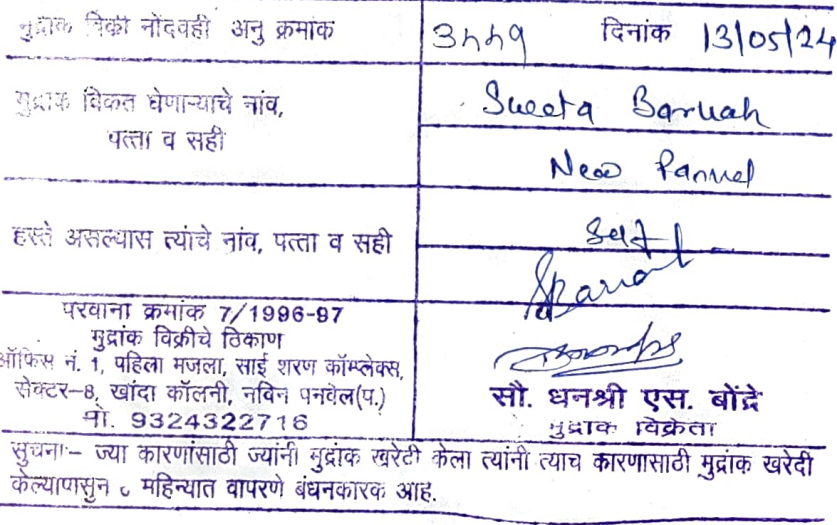 मुद्रांक विक्री नोंदवही अनु क्रमांक ३५५१ दिनांक 13/05/24
मुद्रांक विकत घेणाऱ्याचे नांव, Sweeta Baruah
पत्ता व सही New Panvel
हस्ते असल्यास त्यांचे नांव, पत्ता व सही Self
SBaruah
परवाना क्रमांक 7/1996-97
मुद्रांक विक्रीचे ठिकाण
ऑफिस नं. 1, पहिला मजला, साई शरण कॉम्प्लेक्स,
सेक्टर-8, खांदा कॉलनी, नविन पनवेल(प.) सौ. धनश्री एस. बोंद्रे
मो. 9324322716 मुद्रांक विक्रेता
सुचना:- ज्या कारणांसाठी ज्यांनी मुद्रांक खरेदी केला त्यांनी त्याच कारणासाठी मुद्रांक खरेदी
केल्यापासुन ६ महिन्यात वापरणे बंधनकारक आह.